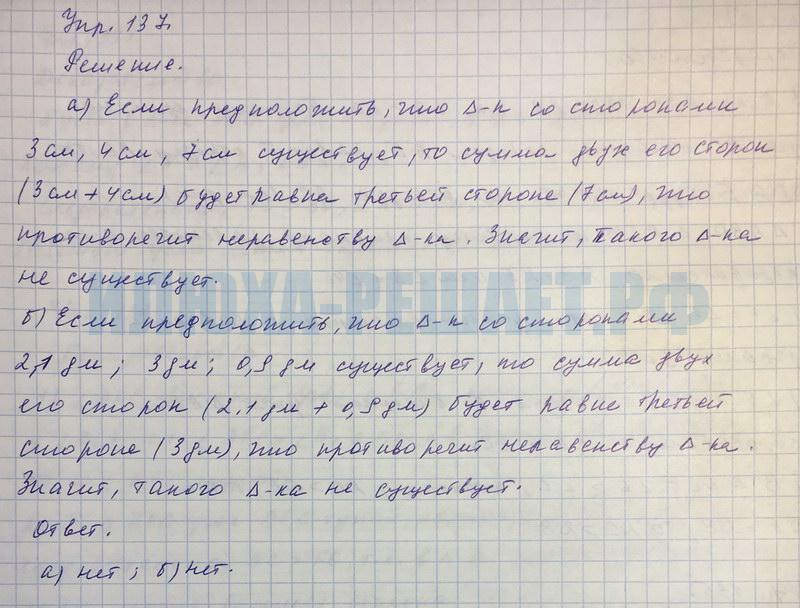 Упр. 137.
Решение.
а) Если предположить, что Δ-к со сторонами
3 см, 4 см, 7 см существует, то сумма двух его сторон
(3 см + 4 см) будет равна третьей стороне (7 см), что
противоречит неравенству Δ-ка. Значит, такого Δ-ка
не существует.
ИЛЮХА-РЕШАЕТ.РФ
б) Если предположить, что Δ-к со сторонами
2,1 дм; 3 дм; 0,9 дм существует, то сумма двух
его сторон (2.1 дм + 0,9 дм) будет равна третьей
стороне (3 дм), что противоречит неравенству Δ-ка.
Значит, такого Δ-ка не существует.
Ответ.
а) нет; б) нет.